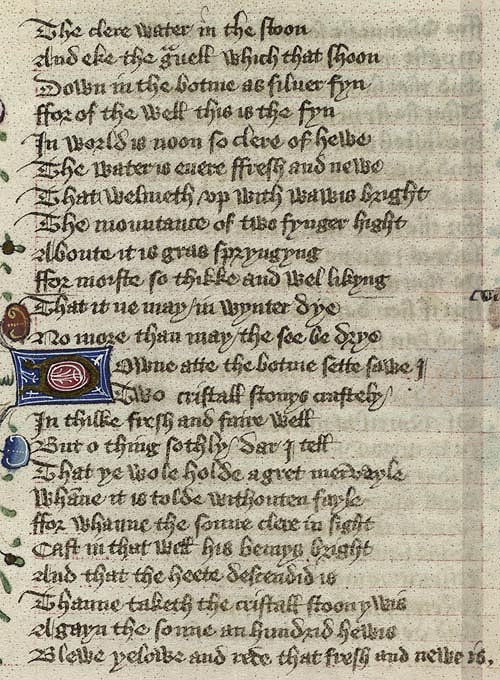 The clere water in the stoon
And eke the gravell which that shoon
Down in the botme as siluer fyn
ffor of the well this is the fyn
In world is noon so clere of hewe
The water is euere ffresh and newe
That welmeth vp with wawis bright
The mountance of two fynger hight
Aboute it is gras spryngyng
ffor moiste so thikke and wel likyng
That it ne may in wynter dye
No more than may the see be drye
Downe atte the botme sette sawe I
Two cristall stonys craftely
In thilke fresh and faire well
But o thing sothly dar I tell
That ye wole holde a gret mervayle
Whanne it is tolde withouten fayle
ffor whanne the sonne clere in sight
Cast in that well his bemys bright
And that the heete descendid is
Thanne taketh the cristall stoon ywis
Agayn the sonne an hundrid hewis
Blewe yelowe and rede that fresh and newe is.